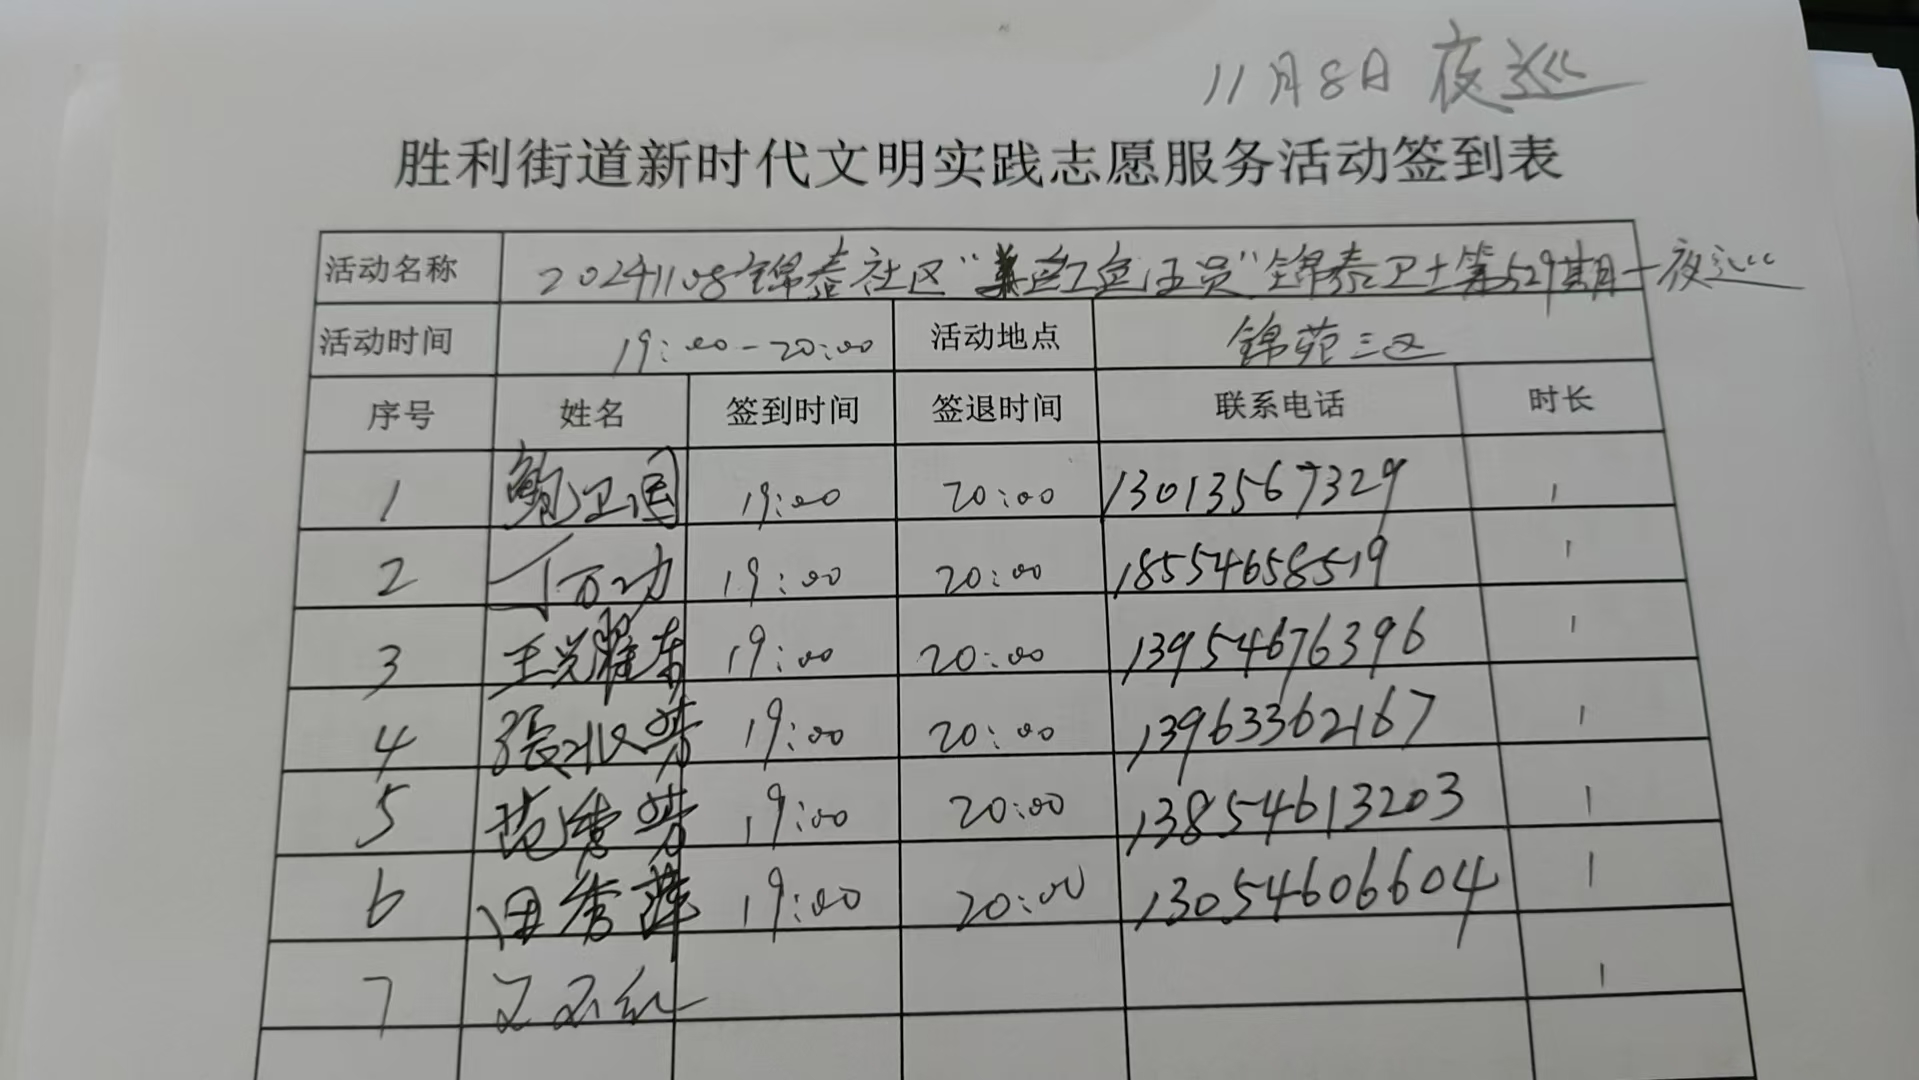 11月8日 夜巡
胜利街道新时代文明实践志愿服务活动签到表
活动名称 20241108锦泰社区“红色到员”锦泰卫士第529期-夜巡
活动时间 19:00-20:00 活动地点 锦苑三区
序号 姓名 签到时间 签退时间 联系电话 时长
1 鲍卫国 19:00 20:00 13013567329 1
2 丁万功 19:00 20:00 18554658519 1
3 王兴耀东 19:00 20:00 13954676396 1
4 张淑芳 19:00 20:00 13963362167 1
5 范秀芳 19:00 20:00 13854613203 1
6 田秀萍 19:00 20:00 13054606604 1
7 1